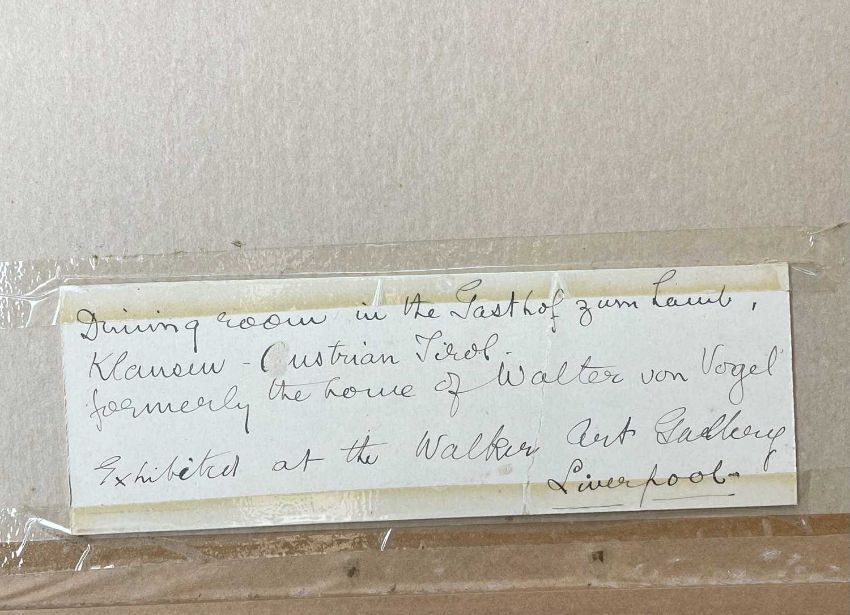 Dining room in the Gasthof zum Lamb,
Klausen - Austrian Tirol.
formerly the home of Walter von Vogel
Exhibited at the Walker Art Gallery
Liverpool-